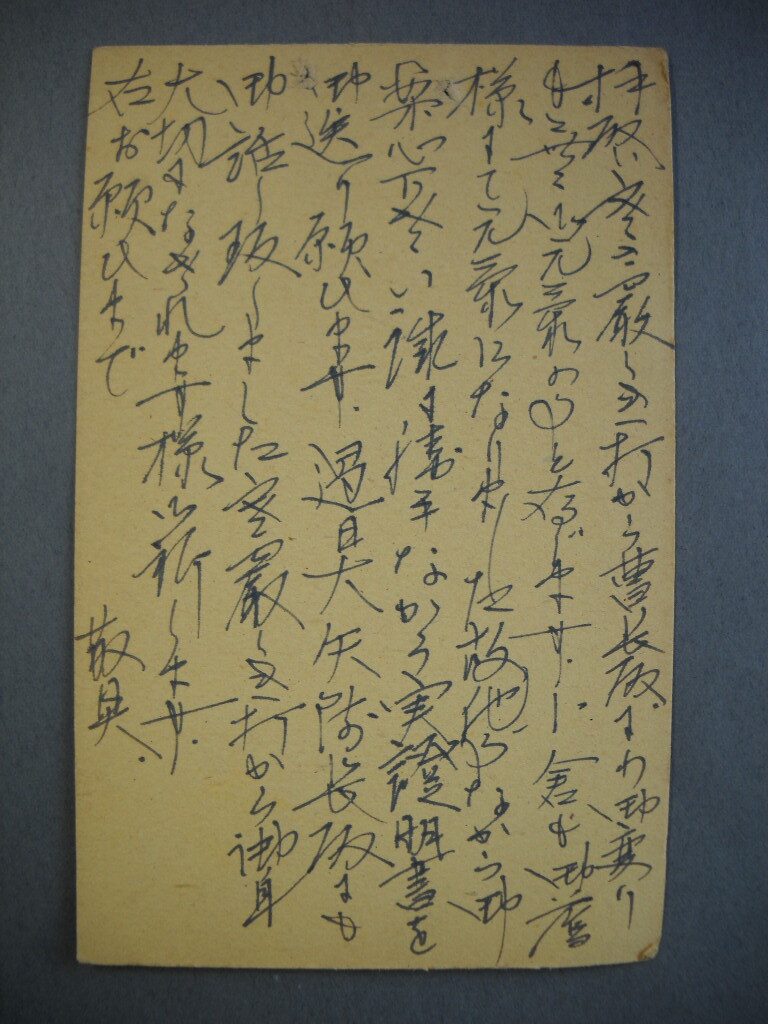 拝啓 寒さ厳しき折から曹長殿には御変り
も無く御元気の事と存じます 小倉も御蔭
様にて元気になりました故他事ながら御
案心下さい 誠に勝手ながら実證明書を
御送り願ひます 過日大矢隊長殿にも
御話し致しました 寒さ厳しき折から御身
大切になされます様お祈りします
右お願ひまで
敬具